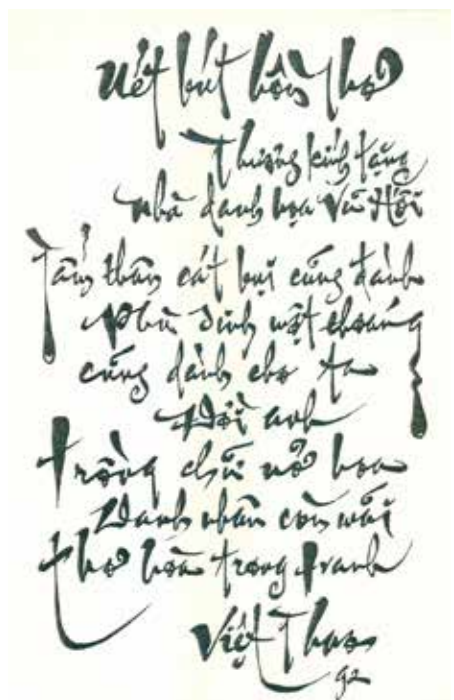 Nét bút hồn thơ
Thương kính tặng
Nhà danh họa Vũ Hối
Tấm thân cát bụi cũng đành
Phù sinh một thoáng
cũng dành cho ta
Đời anh
trồng chữ nở hoa
Danh nhân còn mãi
thơ hòa trong tranh
Việt Thao
92